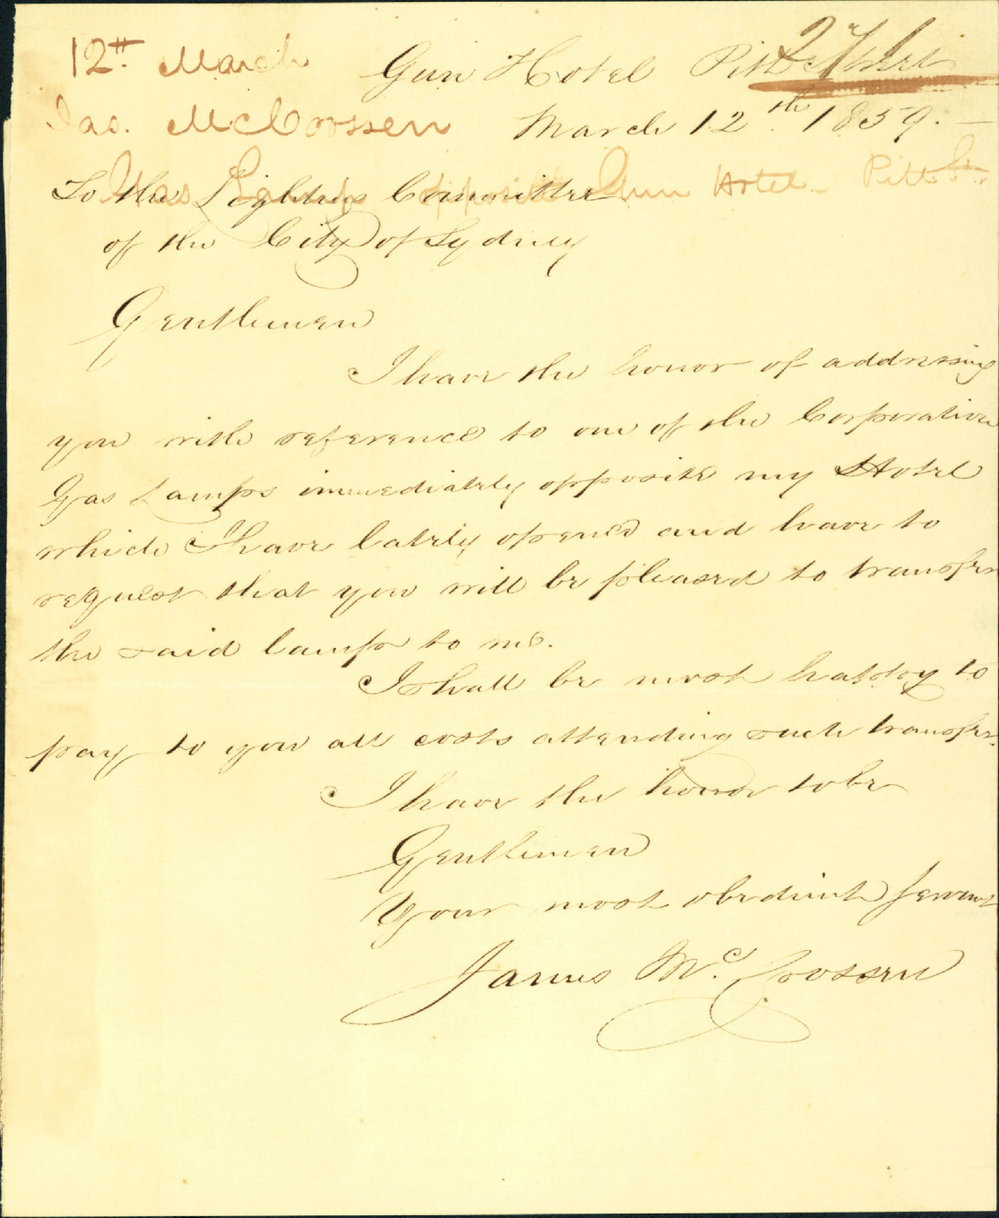 12th March
Jas. McCrossen
Gas Lamp opposite Gun Hotel Pitt St.
Gun Hotel Pitt Street
March 12th 1859.
To the Lighting Committee
of the City of Sydney
Gentlemen
I have the honor of addressing
you with reference to one of the Corporation
Gas Lamps immediately opposite my Hotel
which I have lately opened and have to
request that you will be pleased to transfer
the said lamp to me.
I shall be most happy to
pay to you all costs attending such transfer.
I have the honor to be
Gentlemen
Your most obedient Servant
James McCrossen